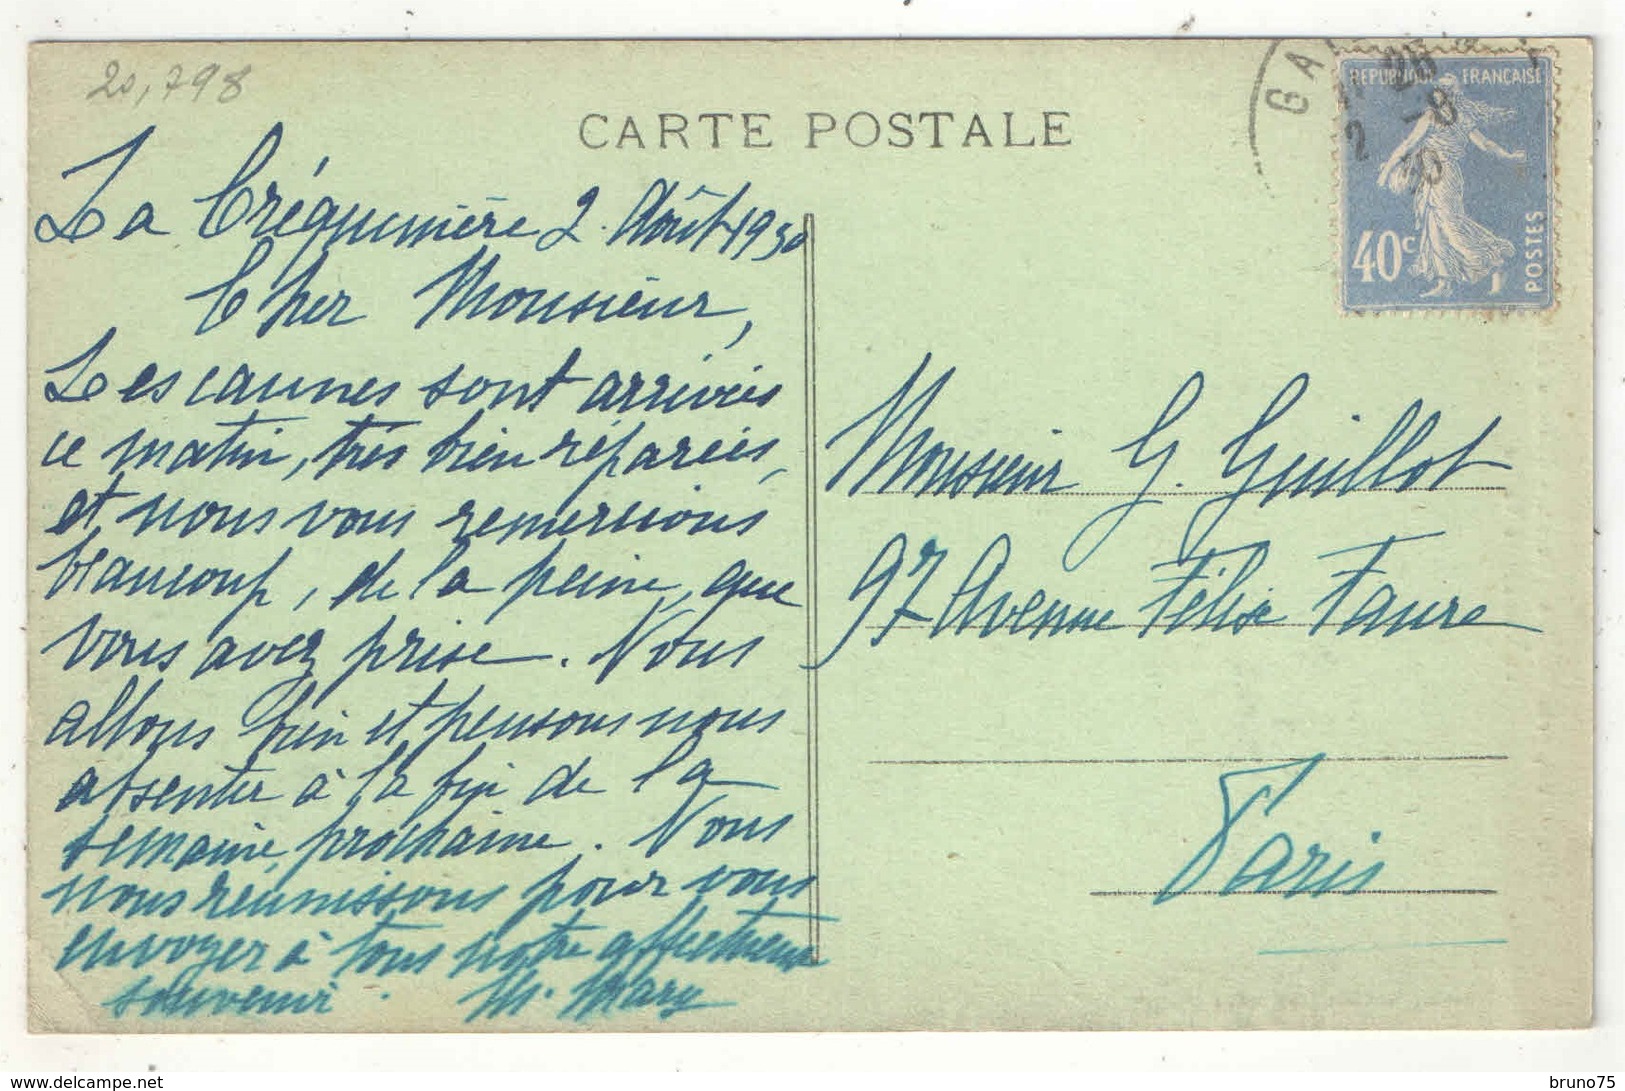 20,798
CARTE POSTALE
GA
2 -8
30
REPUBLIQUE FRANCAISE
40c
POSTES
La Créquinière 2. Août 1930
Cher Monsieur,
Les cannes sont arrivées
ce matin, très bien réparées,
et nous vous remercions
beaucoup, de la peine, que
vous avez prise. Nous
allons bien et pensons nous
absenter à la fin de la
semaine prochaine. Nous
nous réunissons pour vous
envoyer à tous notre affectueux
souvenir. M. Mary
Monsieur G. Guillot
97 Avenue Félix Faure
Paris
www.delcampe.net
bruno75